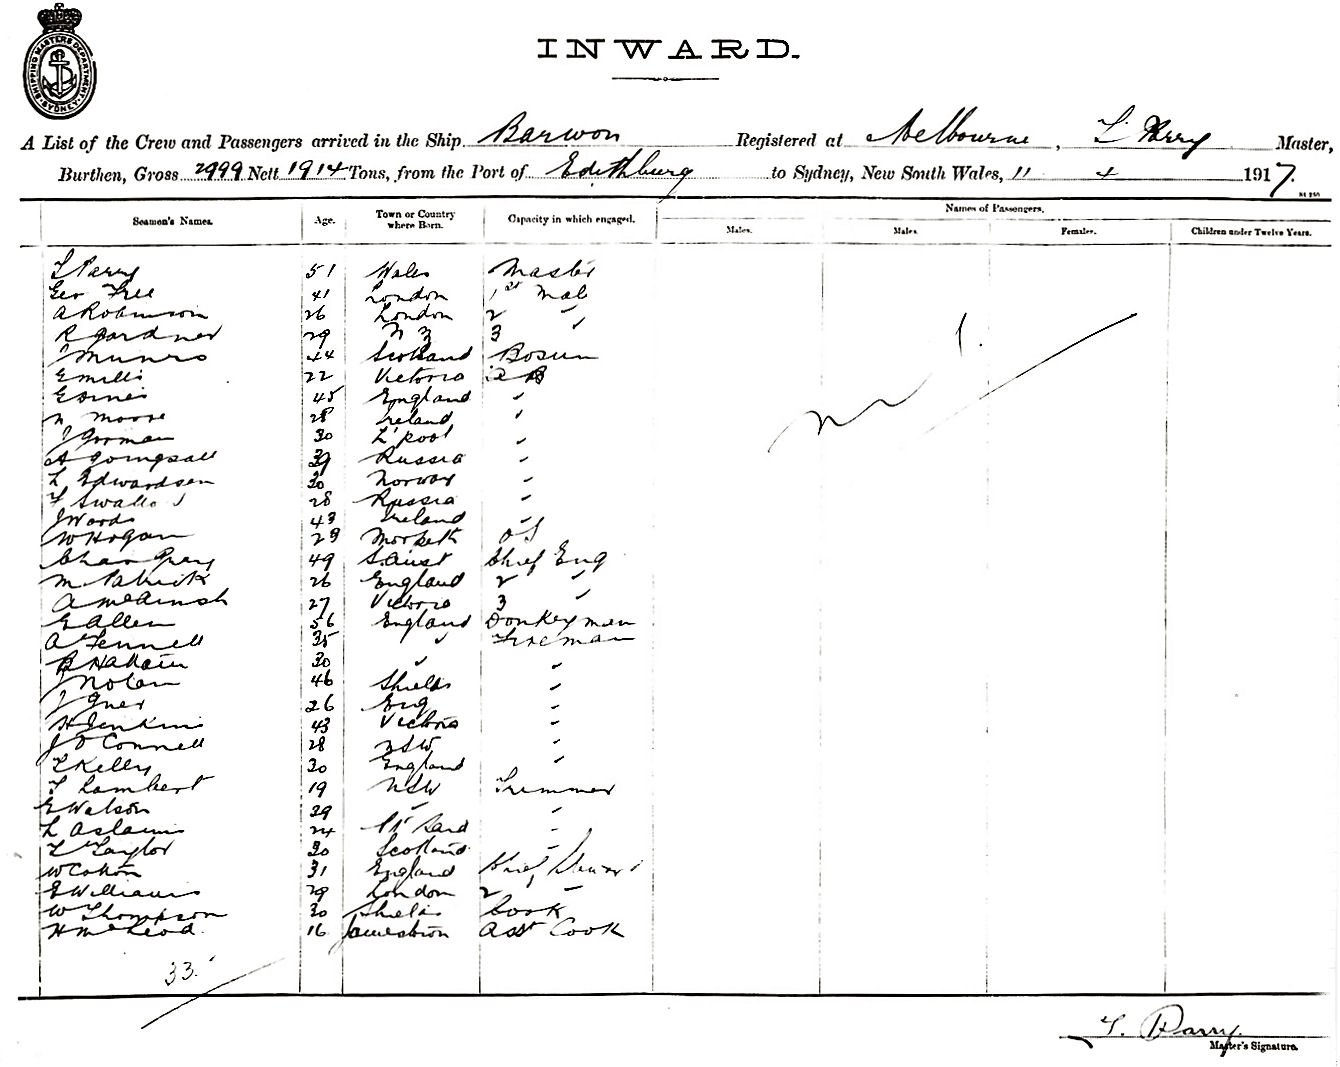 SHIPPING MASTERS DEPARTMENT SYDNEY
INWARD.
A List of the Crew and Passengers arrived in the Ship Barwon Registered at Melbourne, Parry Master,
Burthen, Gross 2999 Nett 1914 Tons, from the Port of Edithburg to Sydney, New South Wales, 11 4 1917.
Seamen's Names. Age. Town or Country where Born. Capacity in which engaged. Names of Passengers.
Males. Males. Females. Children under Twelve Years.
Parry 51 Wales Master
Geo Free 41 London 1st Mate
A Robinson 26 London 2 "
R Gardner 29 N Z 3 "
Munro 44 Scotland Bosun
E Mills 22 Victoria A B
E 45 England "
N Moore 28 Ireland "
J Gorman 30 L'pool "
A 39 Russia "
L Edwardsen 30 Norway "
F 28 Russia "
J Woods 43 Ireland "
W Hogan 29 O S
Chas Grey 49 S. Aust Chief Eng
M Patrick 26 England 2 "
A 27 Victoria 3 "
E Allen 56 England Donkeyman
A Fennell 35 " Fireman
30 " "
J Nolan 46 Shields "
J 26 Eng "
H Jenkins 43 Victoria "
J O'Connell 28 NSW "
Kelly 30 England "
Lambert 19 NSW Trimmer
E Watson 39 " "
L 24 "
Taylor 30 Scotland "
W 31 England Chief Steward
E Williams 29 London 2 "
W Thompson 30 Shields Cook
H McLeod 16 Jamestown Asst Cook
33.
Parry
Master's Signature.